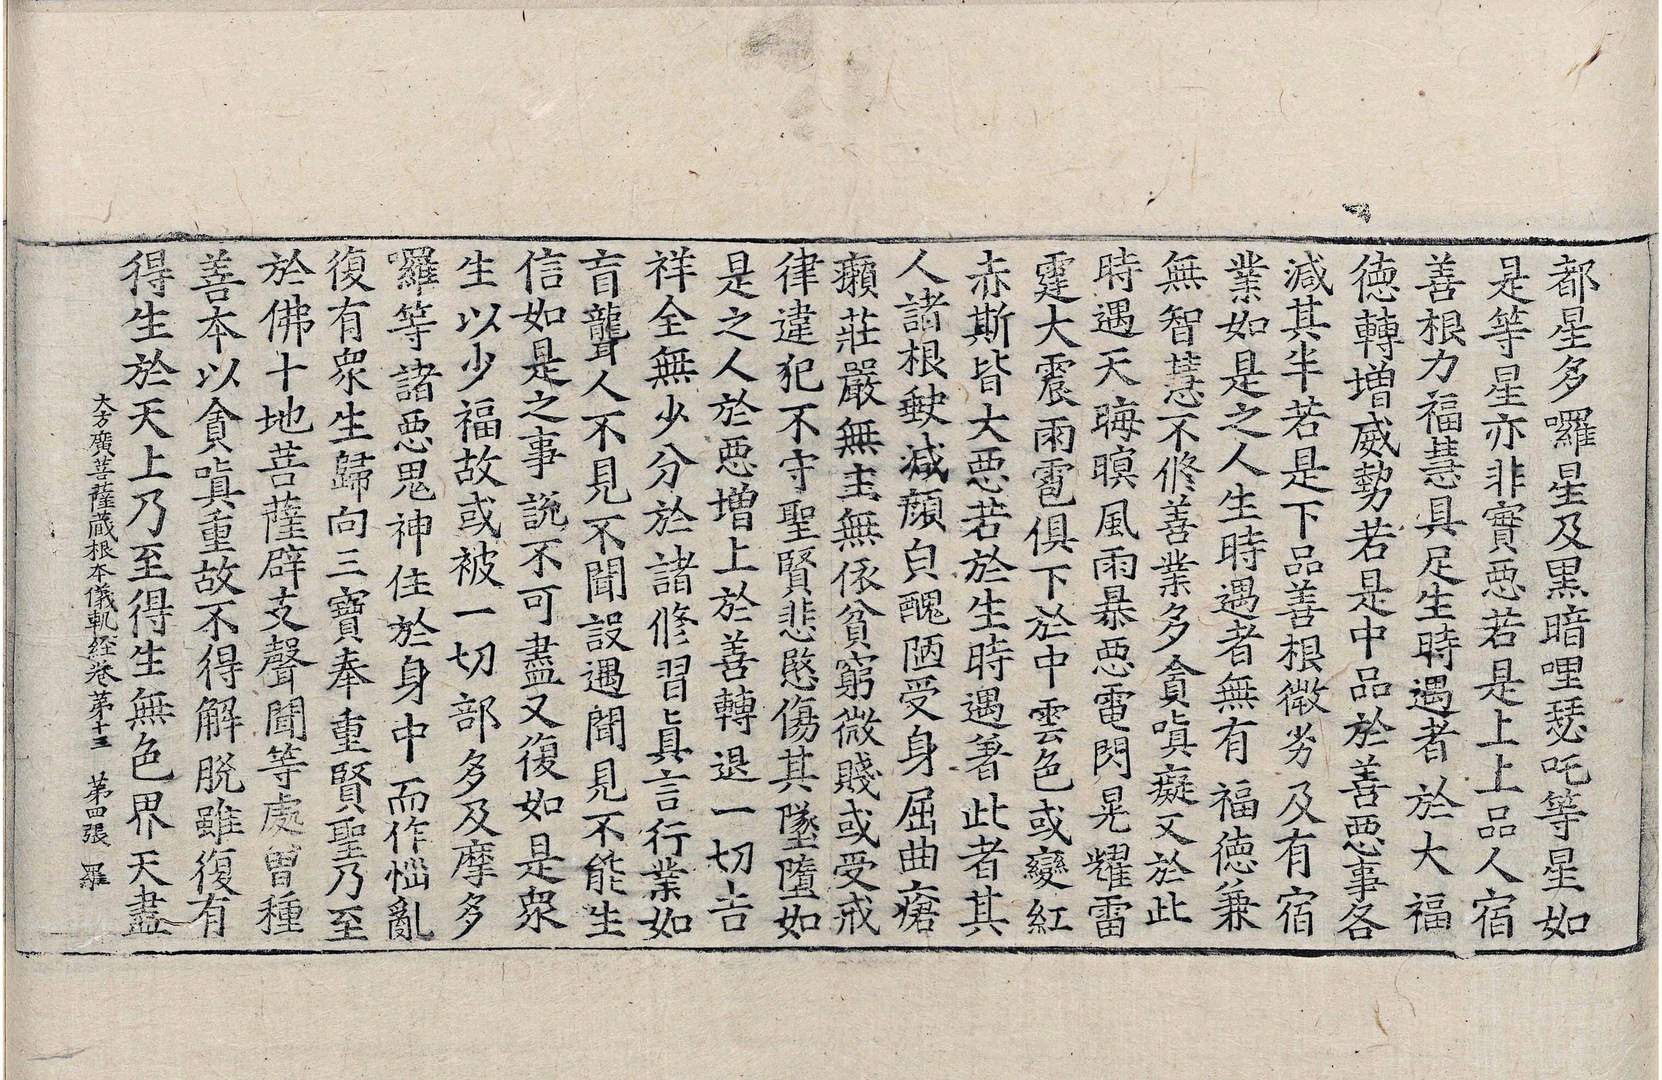 都星多囉星及黒暗哩瑟吒等星如
是等星亦非實惡若是上上品人宿
善根力福慧具足生時遇者於大福
徳轉增威勢若是中品於善惡事各
減其半若是下品善根微劣及有宿
業如是之人生時遇者無有福徳兼
無智慧不修善業多貪嗔癡又於此
時遇天晦暝風雨暴惡電閃晃耀雷
霆大震雨雹俱下於中雲色或變紅
赤斯皆大惡若於生時遇著此者其
人諸根缺減顔皃醜陋受身屈曲瘡
癩莊嚴無主無依貧窮微賤或受戒
律違犯不守聖賢悲愍傷其墜墮如
是之人於惡增上於善轉退一切吉
祥全無少分於諸修習真言行業如
盲聾人不見不聞設遇聞見不能生
信如是之事說不可盡又復如是衆
生以少福故或被一切部多及摩多
囉等諸惡鬼神住於身中而作惱亂
復有衆生歸向三寶奉重賢聖乃至
於佛十地菩薩辟支聲聞等處曽種
善本以貪嗔重故不得解脱雖復有
得生於天上乃至得生無色界天盡
大方廣菩薩蔵根本儀軌經卷第十三 第四張 羅